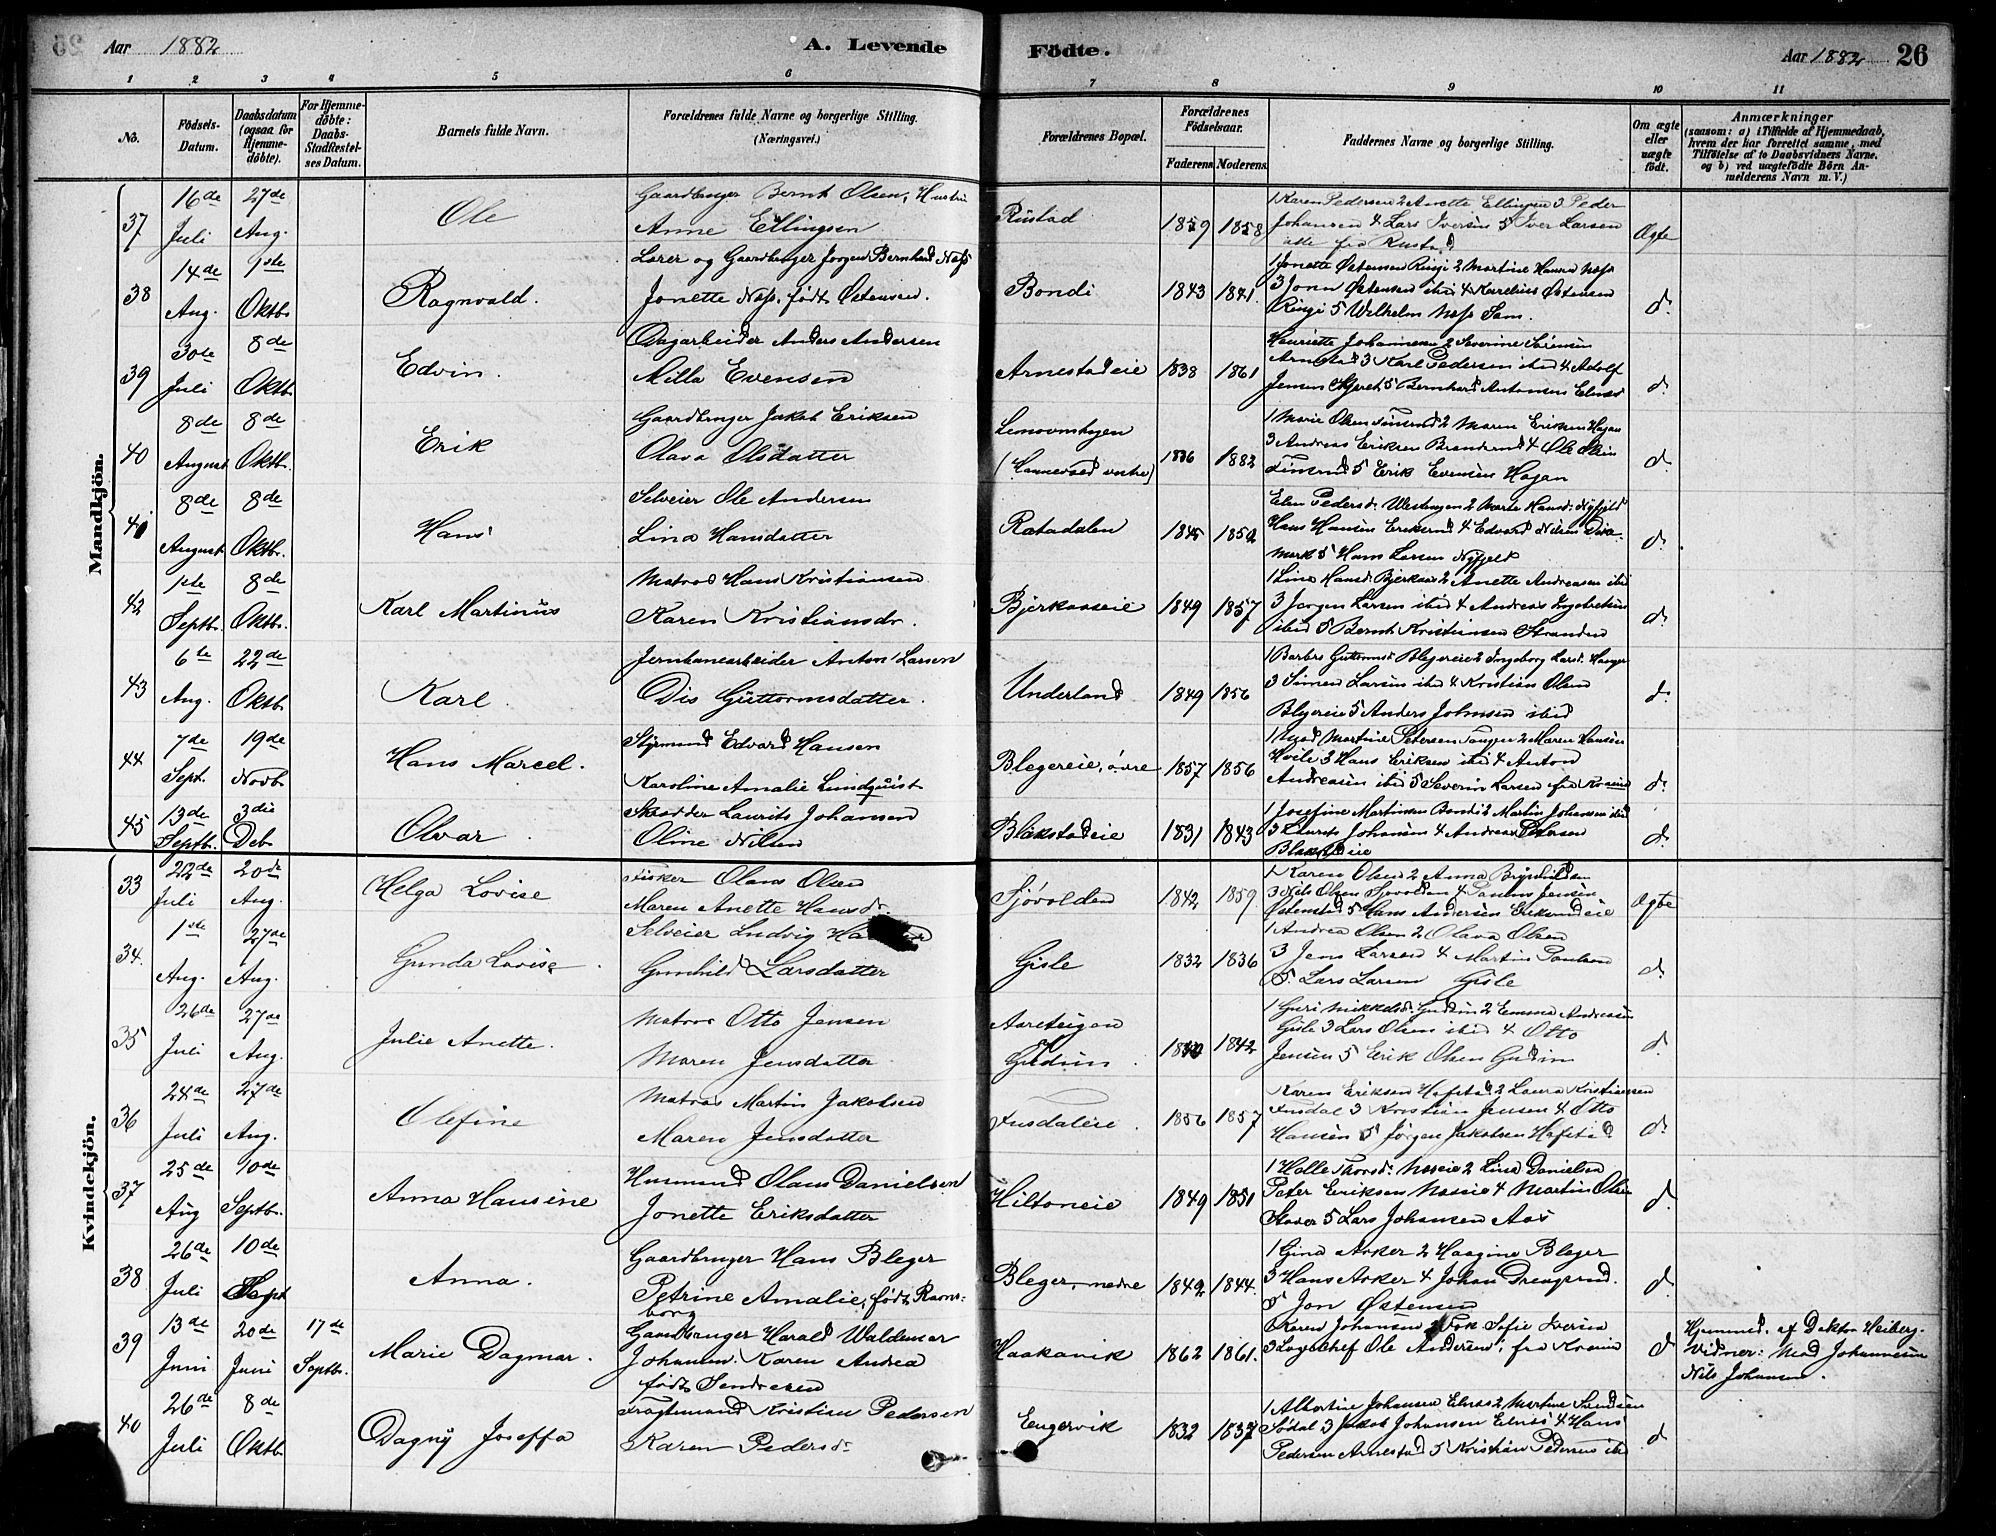 Aar 1882 A. Levende Födte. Aar 1882 26
1 2 3 4 5 6 7 8 9 10 11
No. Födsels-Datum. Daabsdatum (ogsaa for Hjemme-döbte). For Hjemme-döbte: Daabs-Stadfæstel-ses Datum. Barnets fulde Navn. Forældrenes fulde Navne og borgerlige Stilling. (Næringsvei.) Forældrenes Bopæl. Forældrenes Födselsaar. Faderens Moderens. Faddernes Navne og borgerlige Stilling. Om ægte eller uægte födt. Anmærkninger (saasom: a) i Tilfælde af Hjemmedaab, hvem der har forrettet samme, med Tilföielse af to Daabsvidners Navne. og b) ved uægtefödte Börn An-melderens Navn m. V.)
Mandkjön.
37 16de Juli 27de Aug. Ole Gaardbruger Bernt Olsen, Hustru
Anne Ellingsen Rustad 1859 1858 1 Karen Pedersen 2 Anette Ellingsen 3 Peder
Johansen 4 Lars Iversen 5 Iver Larsen
alle fra Rustad Ægte
38 14de Aug. 1ste Oktb. Ragnvald. Lærer og Gaardbruger Jørgen Bernhard Næss
Jonette Næss, født Østensen. Bondi 1843 1841. 1 Jonette Østensen Ringi 2 Martine Hanna Næss
3 Jonn Østensen ibid 4 Karelius Østensen
Ringi 5 Wilhelm Næss Sem. d.
39 30te Juli 8de Oktb Edvin. Dagarbeider Anders Andersen
Milla Evensen Arnestadeie 1838 1861 Henriette Johannesen 2 Severine Simensen
Arnestad 3 Karl Pedersen ibid 4 Adolf
Jensen 5 Bernhard Antonsen Elnæs d.
40 8de August 8de Oktb. Erik Gaardbruger Jakob Eriksen
Olava Olsdatter 1836 1882 1 Marie Olsen 2 Maren Eriksen Hagan
3 Andreas Eriksen 4 Ole Olsen
5 Erik Evensen Hagan d.
41 8de August 8de Oktb. Hans Selveier Ole Andersen
Lina Hansdatter Ratadalen 1845 1852 Elen Pedersd. 2 Marte Hansd. Nyfjeld
Hans Hansen 4 Edvard Nilsen
5 Hans Larsen Nyfjeld d.
42 1ste Septb. 8de Oktb. Karl Martinus Matros Hans Kristiansen
Karen Kristiansdr. Bjerkaaseie 1849 1857 1 Lina Hansd. Bjerkaas 2 Anette Andreasen ibid
3 Jørgen Larsen ibid 4 Andreas Ingebretsen
ibid 5 Bernt Kristiansen Stranden d.
43 6te Aug. 22de Oktb Karl. Jernbanearbeider Anton Larsen
Dis Guttormsdatter. Underland 1849 1856 1 Barbro Guttormsd. Blegereie 2 Ingeborg Larsd.
3 Simen Larsen ibid 4 Kristian Olsen
Blegereie 5 Anders Johnsen ibid d.
44 7de Sept. 19de Novb. Hans Marcel. Styrmand Edvard Hansen
Karoline Amalie Lundquist Blegereie, øvre 1857 1856 Martine Petersen Tangen 2 Maren Hansen
Hvile 3 Hans Eriksen ibid 4 Anton
Andreasen ibid 5 Severin Larsen fra d.
45 13de Septb. 3die Deb Olvar Skrædder Laurits Johansen
Oline Nilsen Blakstadeie 1831 1843 1 Josefine Martinsen Bondi 2 Martin Johansen ibid
3 Laurits Johansen 4 Andreas Petersen
Blakstadeie d.
Kvindekjön.
33 22de Juli 20de Aug. Helga Lovise Fisker Olaus Olsen
Maren Anette Hansdr. Sjøvolden 1842 1859 1 Karen Olsen 2 Anna
3 Nils Olsen Sjøvolden 4 Jensen
Østenstad 5 Hans Andersen Ægte
34. 1ste Aug. 27de Aug. Gunda Lovise Selveier Ludvig
Gunhild Larsdatter Gisle 1832 1836 1 Andrea Olsen 2 Olava Olsen
3 Jens Larsen 4 Martin Paulsen
5. Lars Larsen Gisle d.
35 26de Juli 27de Aug. Julie Anette. Matros Otto Jensen
Maren Jensdatter Aareteigen
Gudim 1842 1 Guri Mikkelsd. Gudim 2 Emma Andreasen
Gisle 3 Lars Olsen ibid 4 Otto
Jensen 5 Erik Olsen Gudim d.
36 24de Juli 27de Aug. Olefine Matros Martin Jakobsen
Maren Jensdatter Fusdaleie. 1856 1857 Karen Eriksen Hofstad 2 Laura Kristiansen
Fusdal 3 Kristian Jensen 4 Otto
Hansen 5 Jørgen Jakobsen Hofstad d.
37 25de Aug 10de Septb. Anna Hansine Husmand Olaus Danielsen
Jonette Eriksdatter Hiltoneie 1849 1851 1 Halle Thorsd. Næseie 2 Lina Danielsen
Peter Eriksen Næseie 4 Martin Olsen
Stover 5 Lars Johansen Aas d.
38 26de Juli 10de Sept Anna. Gaardbruger Hans Bleger
Petrine Amalie, født Ravns-
borg Bleger, nedre 1842 1844. 1 Gina Asker 2 Haagine Bleger
3 Hans Asker 4 Johan Drengsrud.
5 Jon Østensen d.
39 13de Juni 20de Juni 17de Septbr. Marie Dagmar. Gaardbruger Harald Waldemar
Johansen. Karen Andrea
født Haakavik 1862 1861. Karen Johansen Sofie Iversen
3 Logebchef Ole Andersen, fra d. Hjemmed. af Doktor Heiberg.
Vidner: Mad Johannesen
Nils Johansen.
40 26de Juli 8de Oktb. Dagny Joseffa Fragtemand Kristian Pedersen
Karen Pedersdr. Engervik 1832 1837 1 Albertine Johansen Elnæs 2 Martine
3 Jakob Johansen Elnæs 4 Hans
Pedersen Arnestad 5 Kristian Pedersen ibid d.